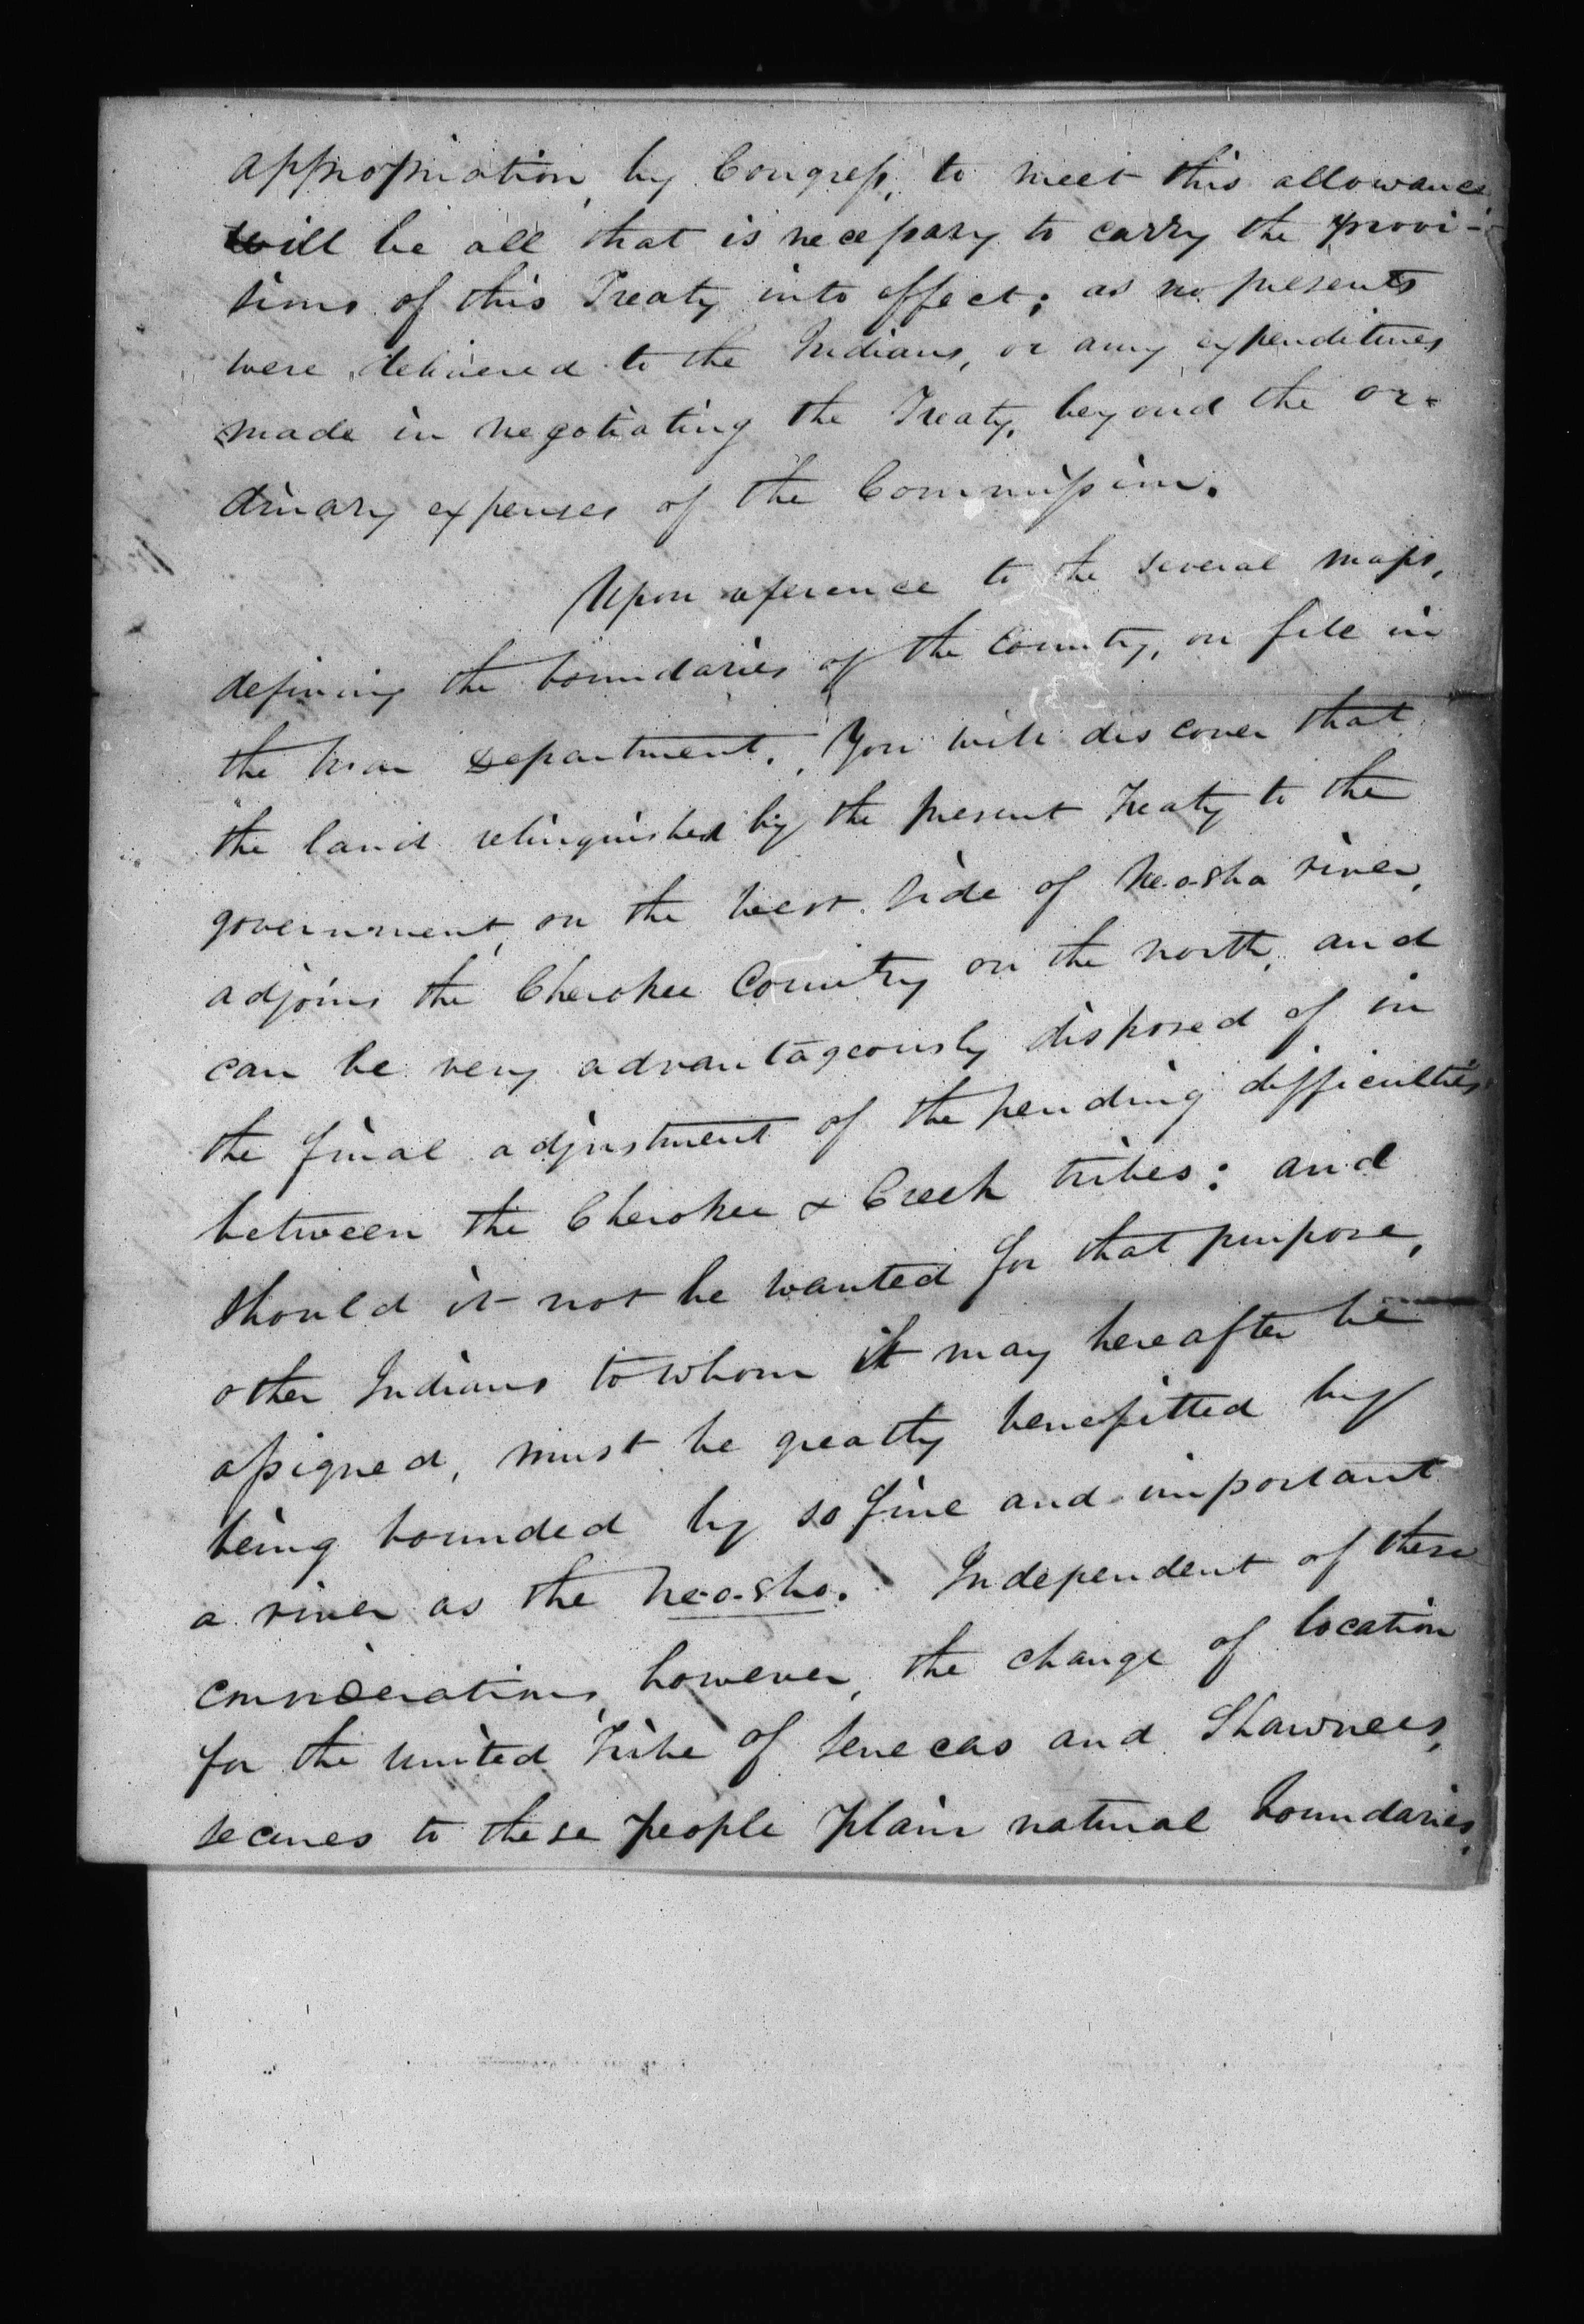 appropriation, by Congress, to meet this allowance,
will be all that is necessary to carry the provi-
sions of this Treaty into effect; as no presents
were delivered to the Indians, or any expenditures
made in negotiating the Treaty, beyond the or-
dinary expenses of the Commission.
Upon reference to the several maps,
defining the boundaries of the Country, on file in
the War Department, You will discover that
the land relinquished by the present Treaty to the
government, on the West side of Ne-o-sho river,
adjoins the Cherokee Country on the north, and
can be very advantageously disposed of in
the final adjustment of the pending difficulties
between the Cherokee & Creek tribes: and
should it not be wanted for that purpose,
other Indians to whom it may hereafter be
assigned, must be greatly benefitted by
being bounded by so fine and important
a river as the Ne-o-sho. Independent of these
considerations, however, the change of location
for the United Tribe of Senecas and Shawnees,
secures to these people plain natural boundaries,